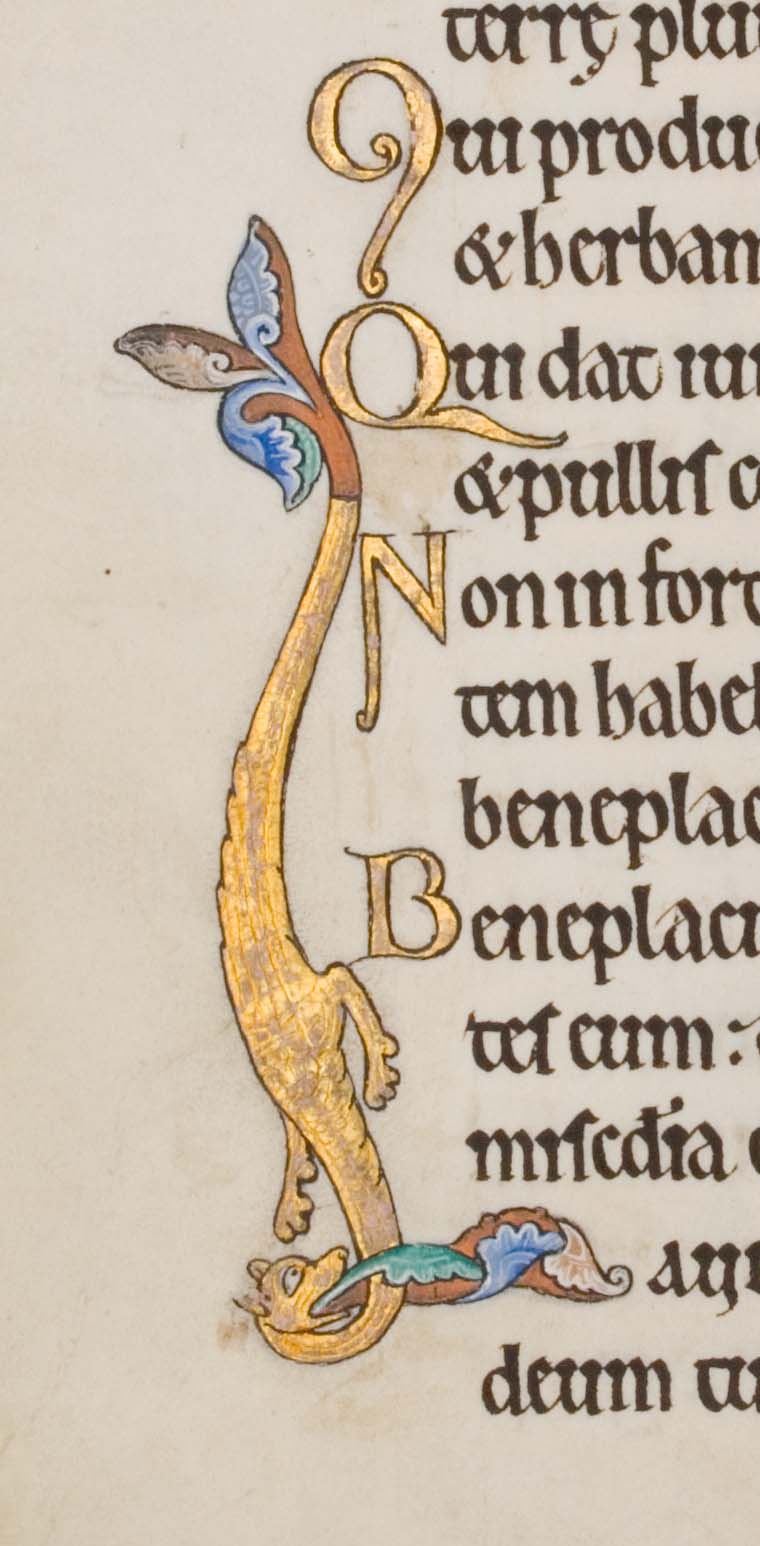 terrę plu
Qui produc
& herbam
Qui dat ium
& pullis c
Non in fort
tem habeb
beneplac
Beneplaci
tes eum :
misc̄dia e
Lau
deum tu